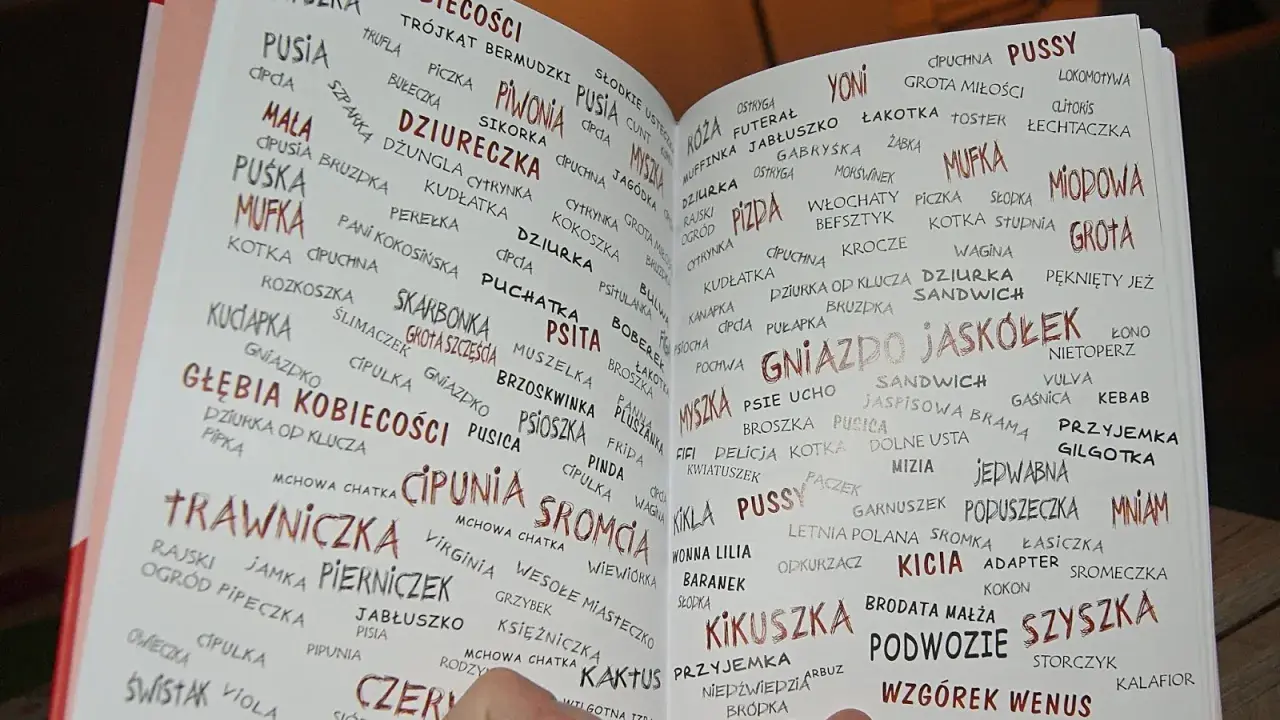 TRÓJKĄT BERMUDZKI
TRUFLA
PUSIA
SŁODKIE
CIPCIA
PICZKA
BUŁECZKA
PIWONIA
PUSIA
CUNT
SZPARKA
SIKORKA
CIPCIA
MAŁA
DZIURECZKA
MYSZKA
CIPUSIA
BRUZDKA
DŻUNGLA
CYTRYNKA
CIPUCHNA
JAGÓDKA
PUŚKA
KUDŁATKA
CYTRYNKA
GROTA
MUFKA
PEREŁKA
KOKOSZKA
PANI KOKOSIŃSKA
DZIURKA
CIPCIA
KOTKA
CIPUCHNA
PSITULANKA
ROZKOSZKA
PUCHATKA
BOBEREK
SKARBONKA
PSITA
ŁAKOTKA
KUCIAPKA
ŚLIMACZEK
GROTA SZCZĘŚCIA
MUSZELKA
BROSZKA
GNIAZDKO
CIPULKA
GNIAZDKO
BRZOSKWINKA
PLUSZANKA
GŁĘBIA KOBIECOŚCI
PUSICA
PSIOSZKA
FRIDA
DZIURKA OD KLUCZA
PIPKA
PINDA
CIPULKA
WAGINA
MCHOWA CHATKA
CIPUNIA
SROMCIA
TRAWNICZKA
MCHOWA CHATKA
VIRGINIA
WIEWIÓRKA
RAJSKI OGRÓD
JAMKA
PIERNICZEK
WESOŁE MIASTECZKO
PIPECZKA
GRZYBEK
JABŁUSZKO
KSIĘŻNICZKA
PISIA
OWIECZKA
CIPULKA
PIPUNIA
MCHOWA CHATKA
KAKTUS
ŚWISTAK
VIOLA
CIPUCHNA
PUSSY
YONI
GROTA MIŁOŚCI
LOKOMOTYWA
OSTRYGA
CLITORIS
RÓŻA
FUTERAŁ
ŁAKOTKA
TOSTER
ŁECHTACZKA
MUFFINKA
JABŁUSZKO
GABRYŚKA
ŻABKA
MUFKA
DZIURKA
OSTRYGA
MORŚWINEK
MIODOWA
RAJSKI OGRÓD
PIZDA
WŁOCHATY BEFSZTYK
PICZKA
SŁODKA
KOTKA
STUDNIA
GROTA
CYTRYNKA
CIPUCHNA
KROCZE
WAGINA
KUDŁATKA
DZIURKA OD KLUCZA
DZIURKA
PĘKNIĘTY JEŻ
KANAPKA
BRUZDKA
SANDWICH
CIPCIA
PUŁAPKA
GNIAZDO JASKÓŁEK
ŁONO
POCHWA
NIETOPERZ
MYSZKA
PSIE UCHO
SANDWICH
VULVA
GAŚNICA
KEBAB
BROSZKA
PUSICA
JASPISOWA BRAMA
PRZYJEMKA
FIFI
DELICJA
KOTKA
DOLNE USTA
GILGOTKA
KWIATUSZEK
MIZIA
JEDWABNA
PĄCZEK
KIKLA
PUSSY
GARNUSZEK
PODUSZECZKA
MNIAM
LETNIA POLANA
SROMKA
ŁASICZKA
WONNA LILIA
ODKURZACZ
KICIA
ADAPTER
SROMECZKA
BARANEK
KOKON
SŁODKA
KIKUSZKA
BRODATA MAŁŻA
SZYSZKA
PODWOZIE
PRZYJEMKA
ARBUZ
STORCZYK
NIEDŹWIEDZIA
BRÓDKA
WZGÓREK WENUS
KALAFIOR